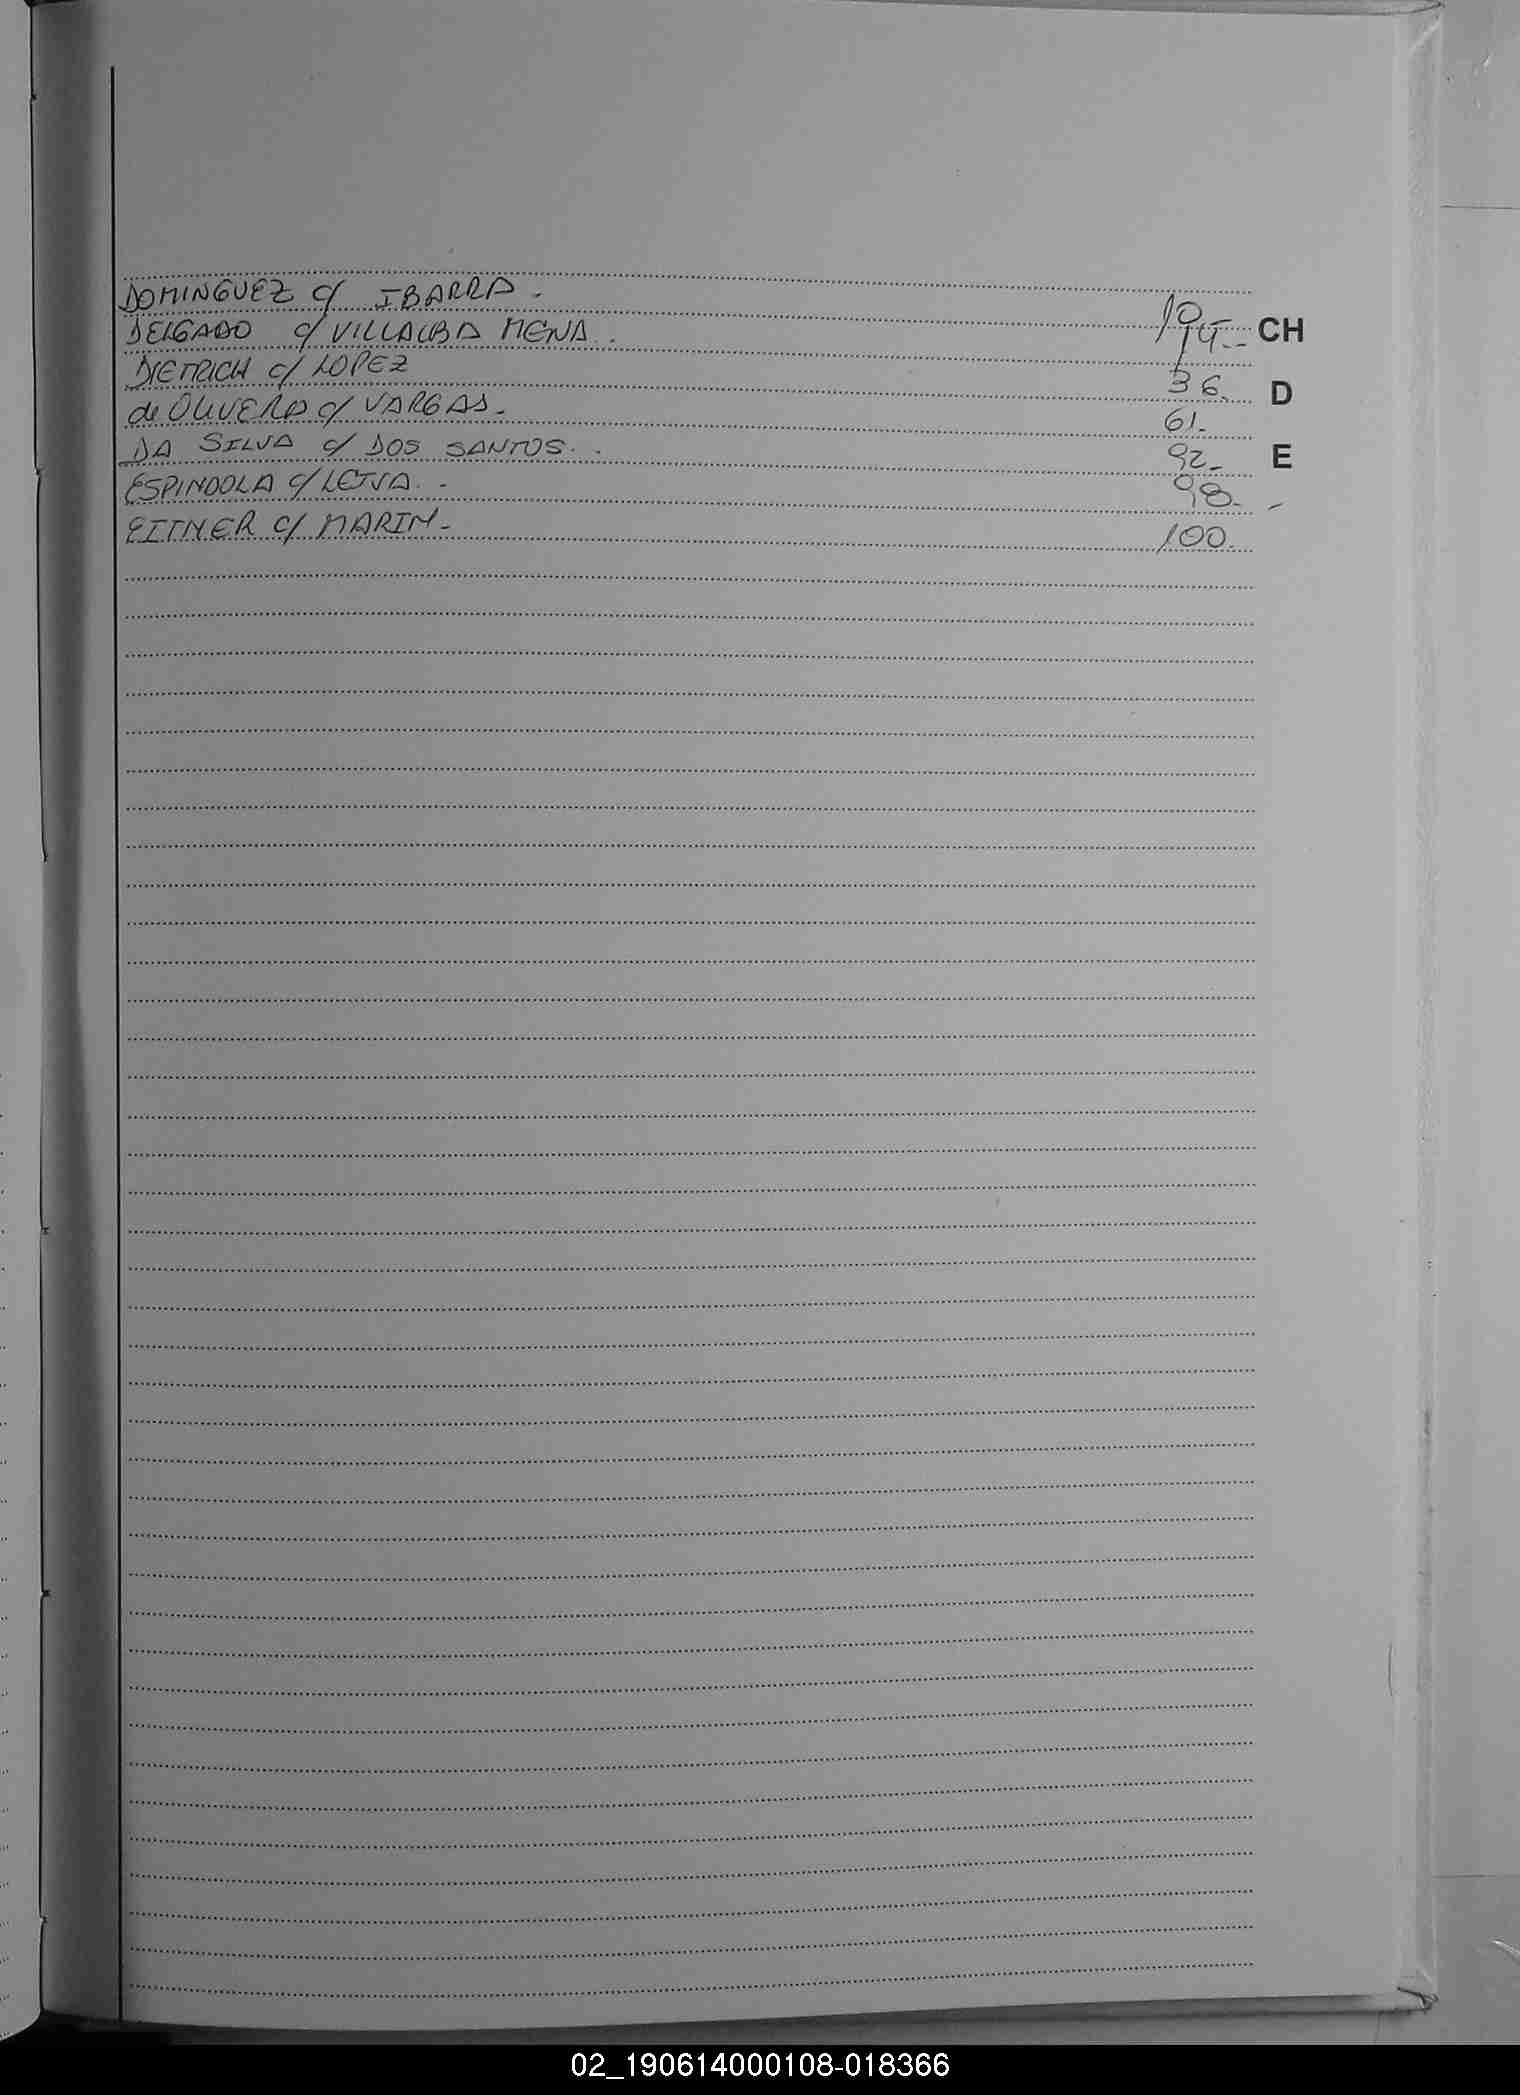 DOMINGUEZ c/ IBARRA.
DELGADO c/ VILLALBA MENA. CH
DIETRICH c/ LOPEZ 36. D
de OLIVERA c/ VARGAS. 61.
DA SILVA c/ DOS SANTOS. 92. E
ESPINDOLA c/ LEIVA. 98.
EITNER c/ MARIN. 100.
02_190614000108-018366